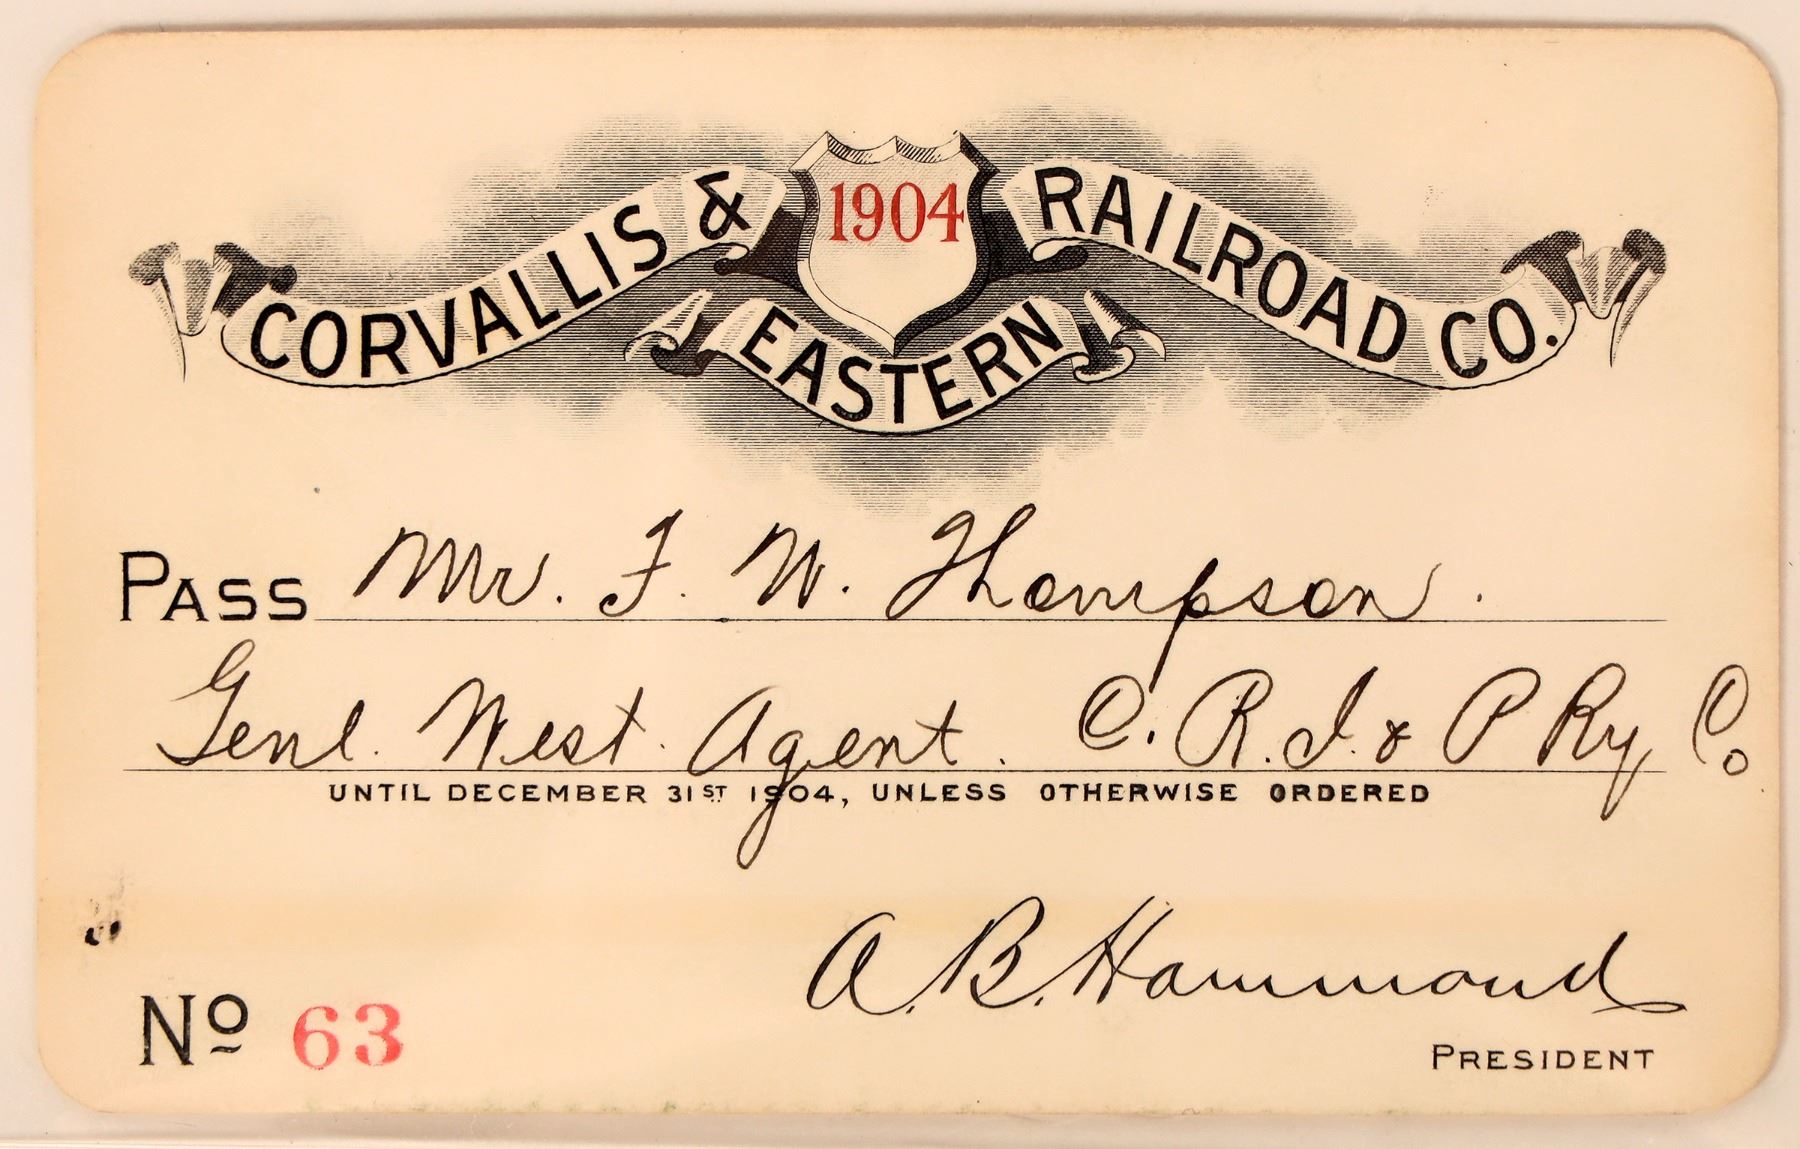 CORVALLIS & EASTERN RAILROAD CO.
1904
PASS Mr. F. W. Thompson.
Genl. West. Agent. C. R. I. & P Ry Co
UNTIL DECEMBER 31ST 1904, UNLESS OTHERWISE ORDERED
A. B. Hammond
PRESIDENT
No 63